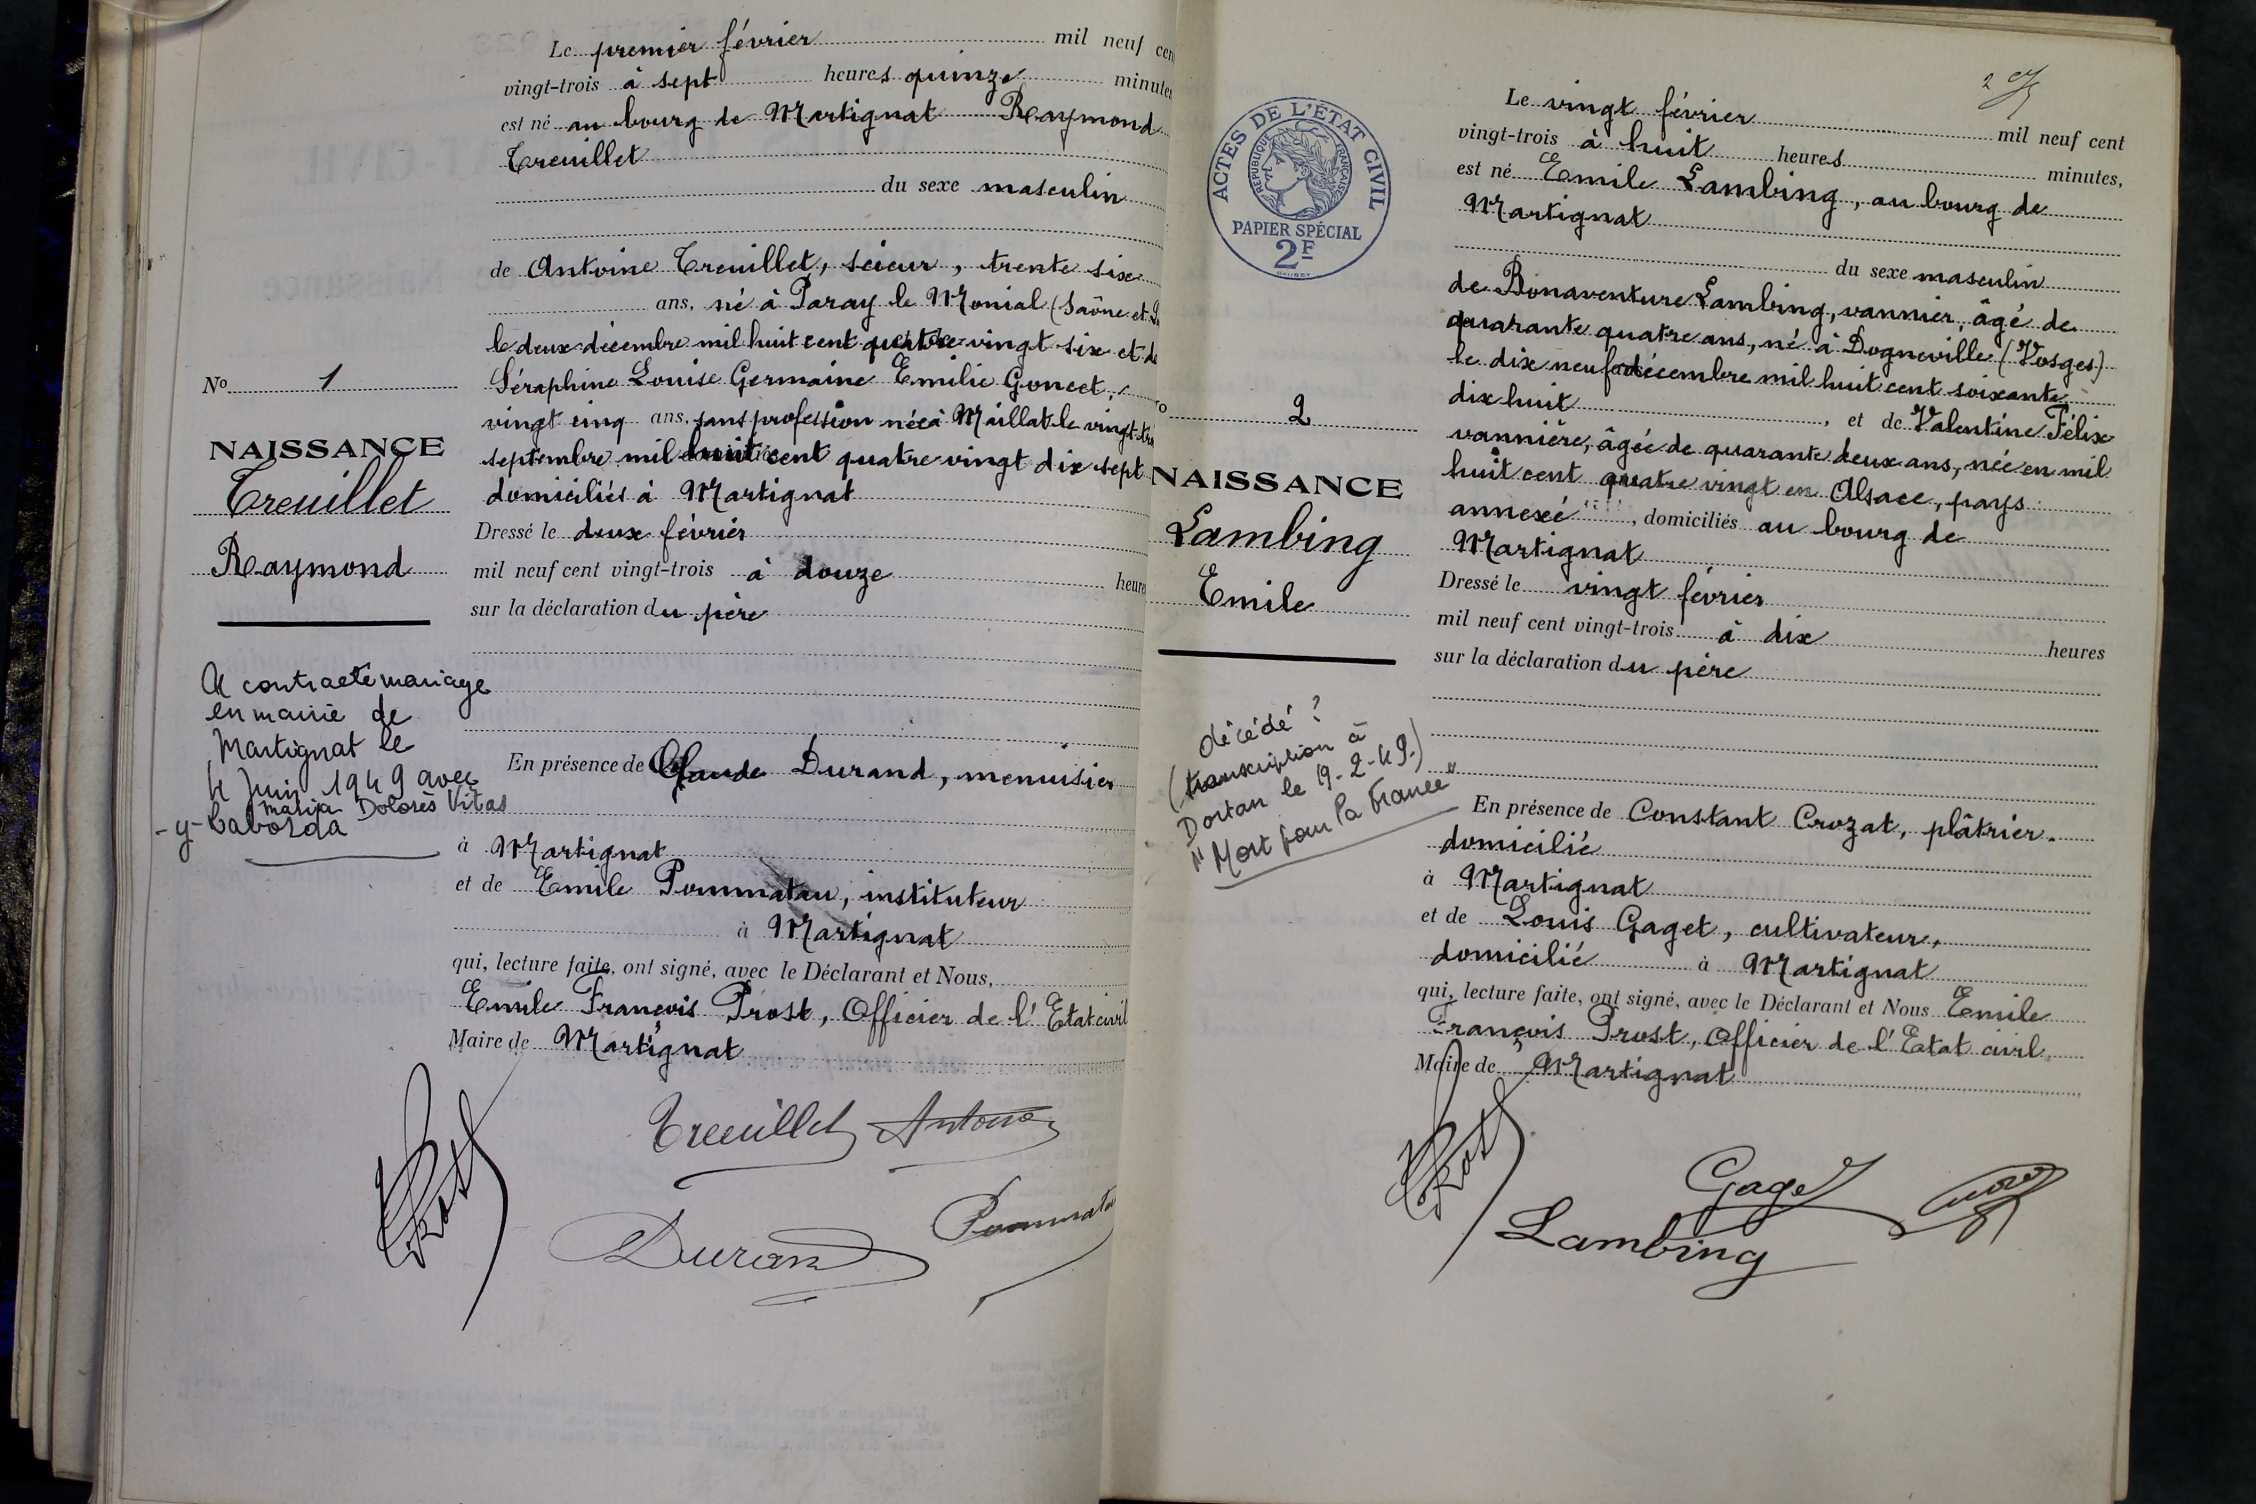 Le premier février mil neuf cen
vingt-trois à sept heures quinze minutes
est né au bourg de Martignat Raymond
Treuillet
du sexe masculin
de Antoine Treuillet, scieur, trente six
ans, né à Paray le Monial (Saône et
le deux décembre mil huit cent quatre vingt six et de
Séraphine Louise Germaine Emilie Goncet,
vingt cinq ans, sans profession née à Maillat le vingt
septembre mil huit cent quatre vingt dix sept
domiciliés à Martignat
Dressé le deux février
mil neuf cent vingt-trois à douze heure
sur la déclaration du père
En présence de Claude Durand, menuisier
à Martignat
et de Emile Pommatau, instituteur
à Martignat
qui, lecture faite, ont signé, avec le Déclarant et Nous,
Emile François Prost, Officier de l'Etat civil
Maire de Martignat
Treuillet Antoine
Prost
Durand
Pommata
No 1
NAISSANCE
Treuillet
Raymond
A contracté mariage
en mairie de
Martignat le
4 Juin 1949 avec
Maria Dolorès Vitas
-y-
ACTES DE L'ÉTAT CIVIL
RÉPUBLIQUE FRANÇAISE
PAPIER SPÉCIAL
2F
2
Le vingt février mil neuf cent
vingt-trois à huit heures minutes,
est né Emile Lambing, au bourg de
Martignat
du sexe masculin
de Bonaventure Lambing, vannier, âgé de
quarante quatre ans, né à Dogneville (Vosges)
le dix neuf décembre mil huit cent soixante
dix huit, et de Valentine Félix
vannière, âgée de quarante deux ans, née en mil
huit cent quatre vingt en Alsace, pays
annexé, domiciliés au bourg de
Martignat
Dressé le vingt février
mil neuf cent vingt-trois à dix heures
sur la déclaration du père
En présence de Constant Crozat, plâtrier.
domicilié
à Martignat
et de Louis Gaget, cultivateur,
domicilié à Martignat
qui, lecture faite, ont signé, avec le Déclarant et Nous Emile
François Prost, Officier de l'Etat civil,
Maire de Martignat
Prost
Gaget
Lambing
o 2
NAISSANCE
Lambing
Emile
décédé ?
(transcription à
Dortan le 19-2-49.)
"Mort pour la France"